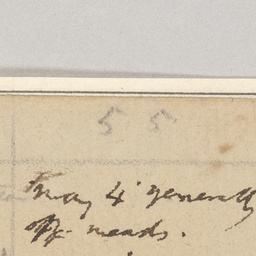 55
may 4 generally
off meads.